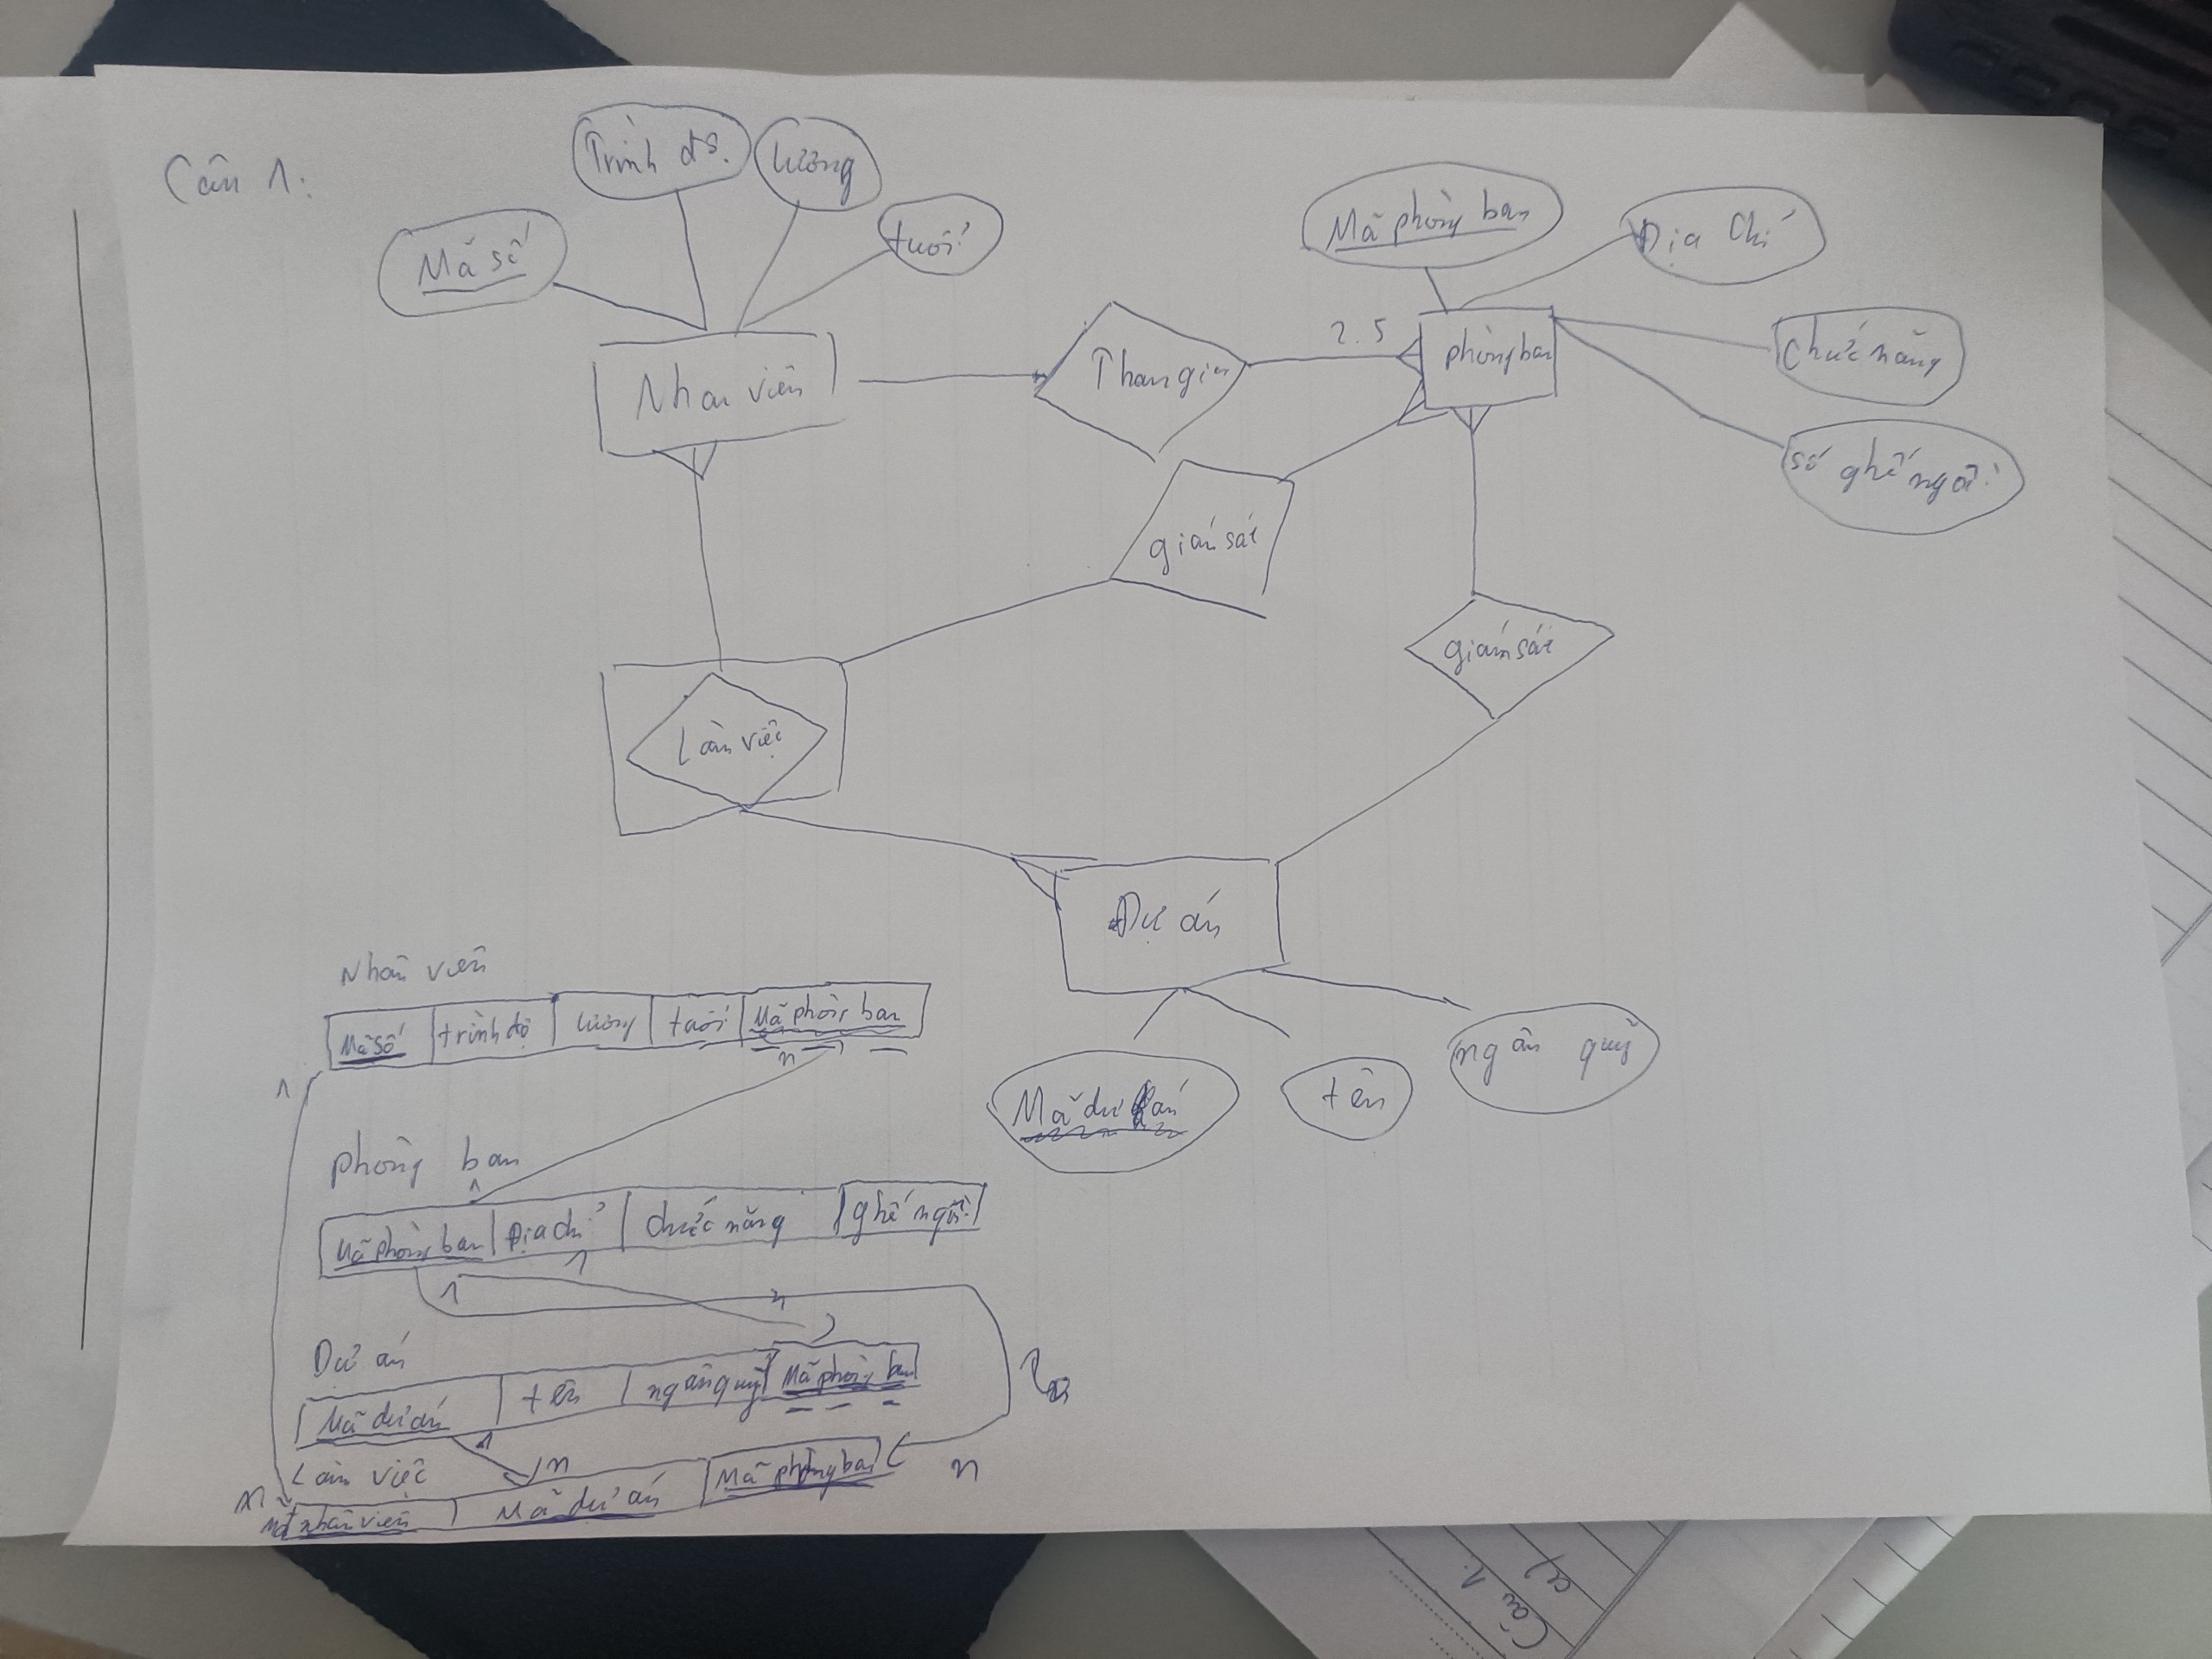 Câu 1:
Trình độ.
lương
tuổi
Mã số
Mã phòng ban
Địa Chỉ
Nhân viên
Tham gia
2.5
phòng ban
Chức năng
số ghế ngồi
giám sát
giám sát
Làm việc
Dự án
Mã dự án
tên
ngân quỹ
Nhân viên
Mã số trình độ lương tuổi Mã phòng ban
1 n
phòng ban
1
Mã phòng ban Địa chỉ chức năng ghế ngồi
1 1
n
Dự án
Mã dự án tên ngân quỹ Mã phòng ban
1 n
Làm việc
n n
Mã nhân viên Mã dự án Mã phòng ban
Câu 1:
a)